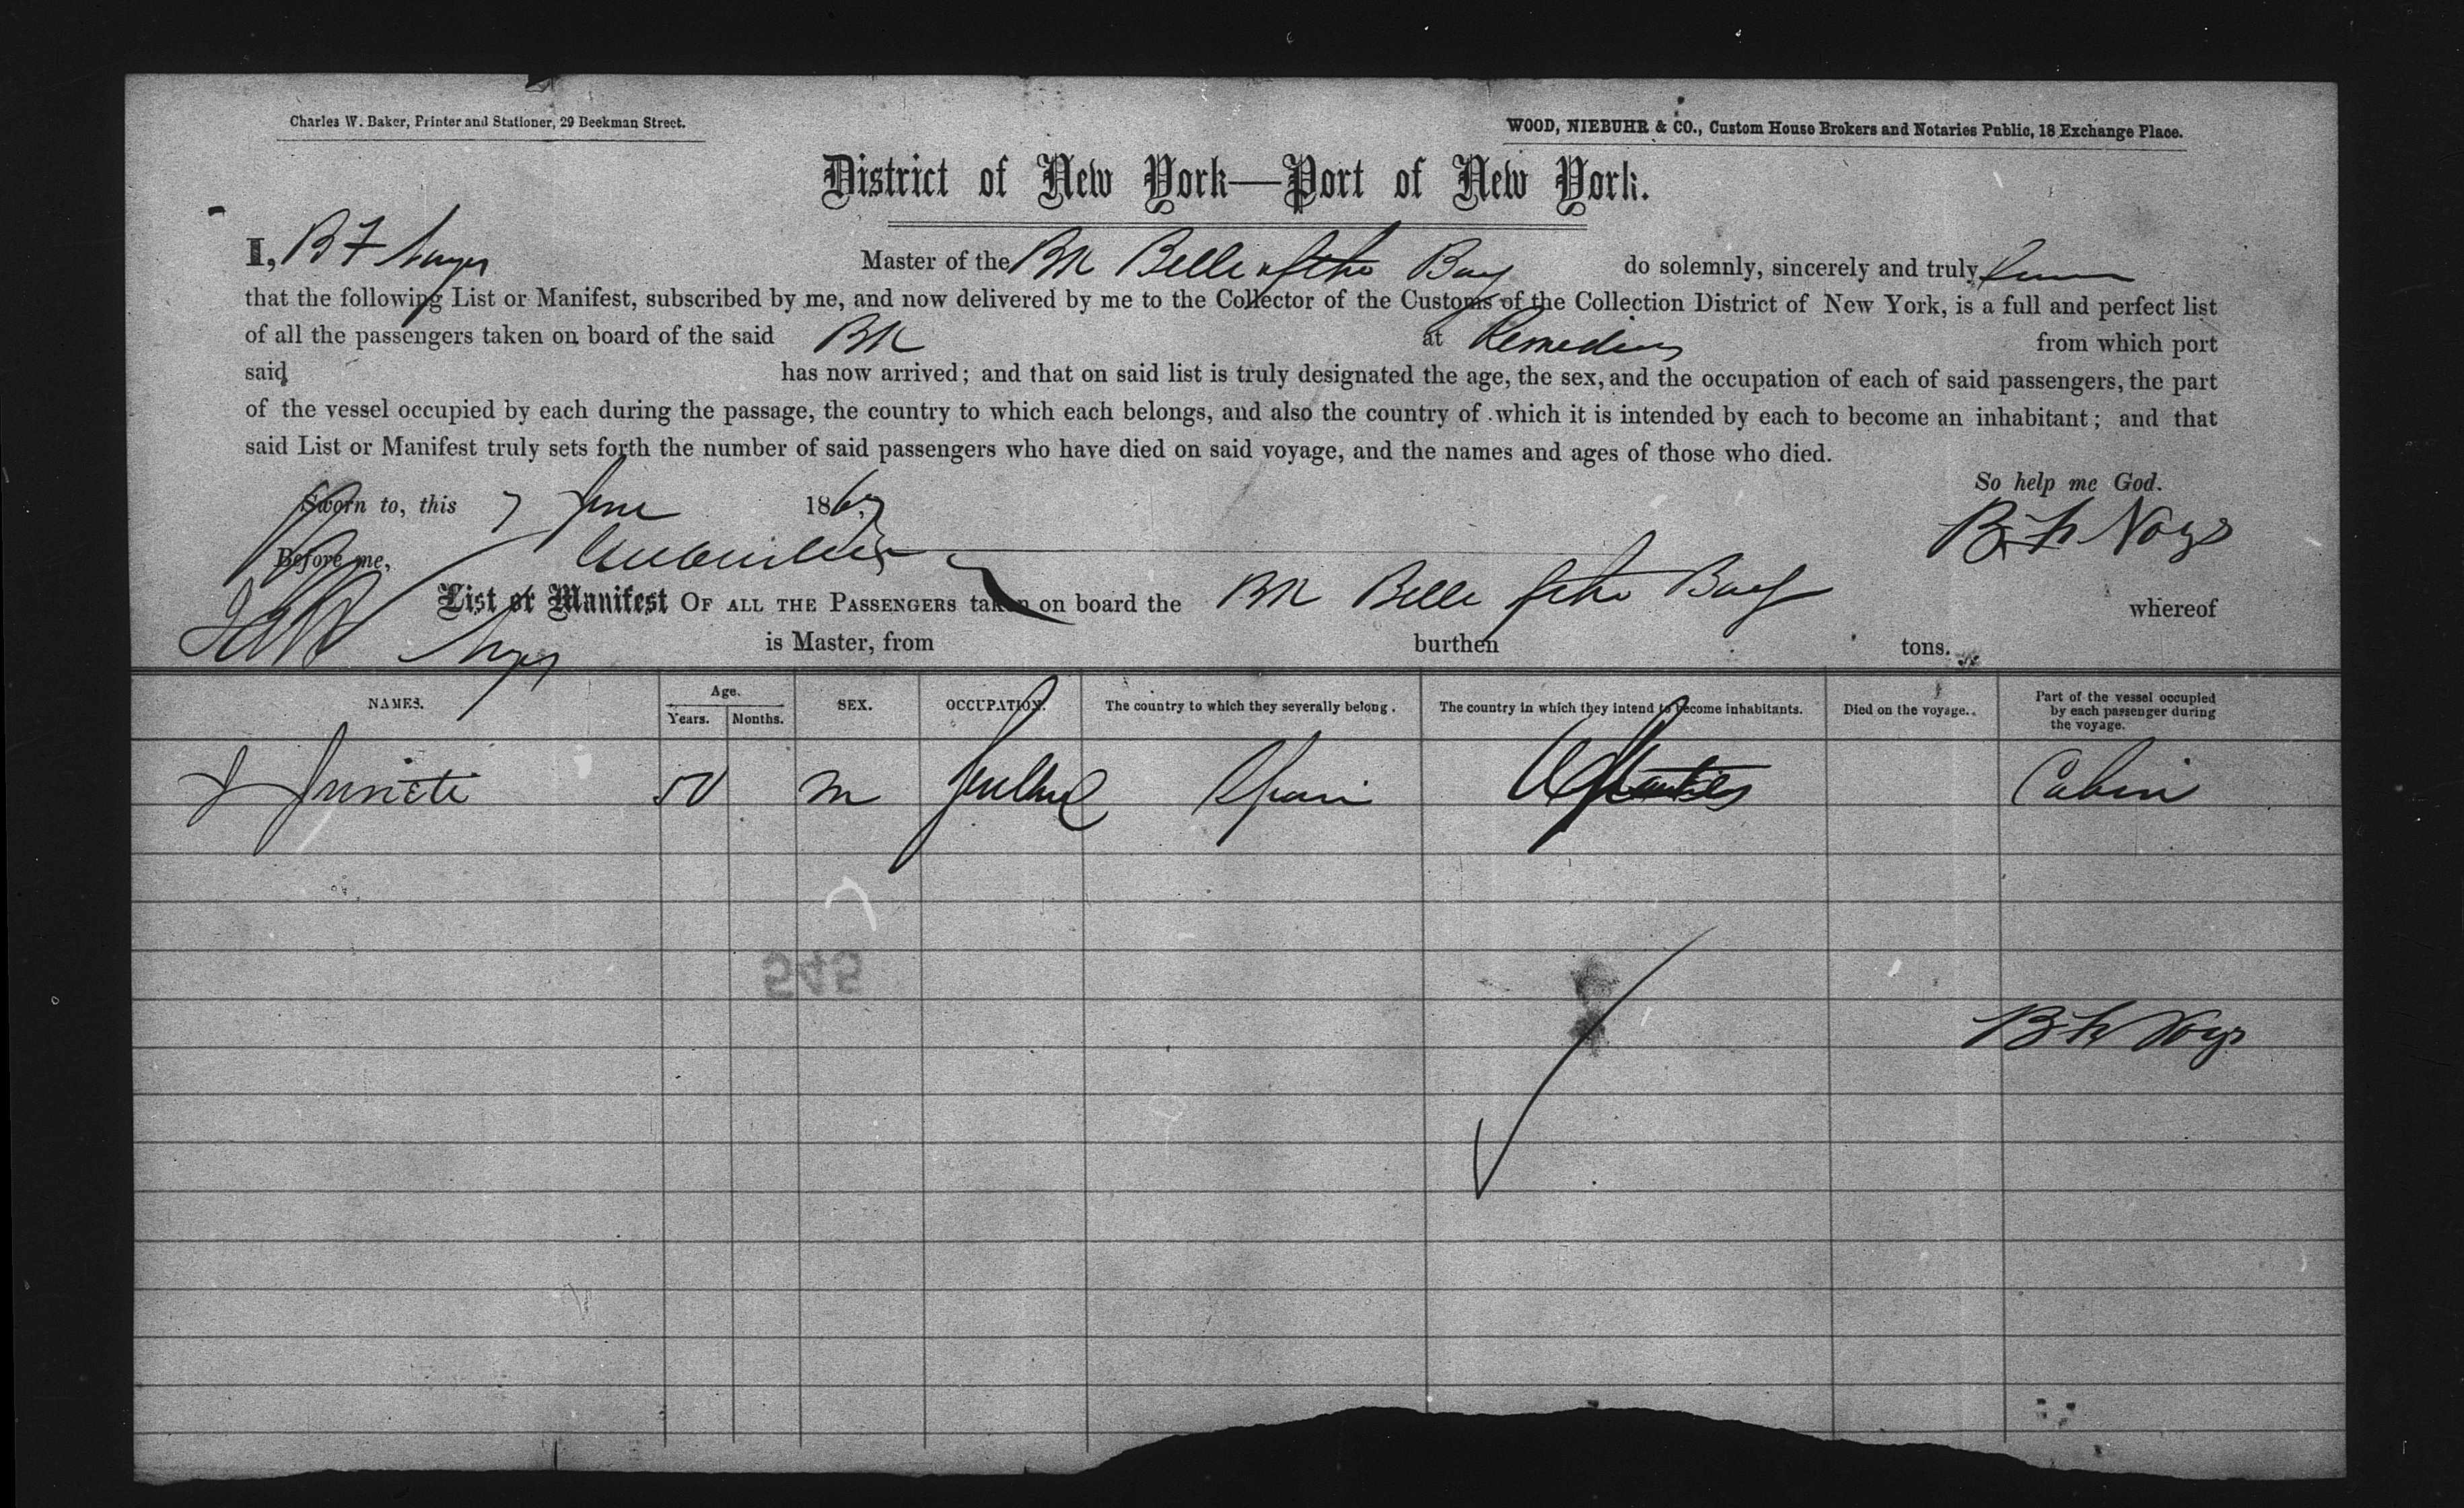 Charles W. Baker, Printer and Stationer, 29 Beekman Street.
WOOD, NIEBUHR & CO., Custom House Brokers and Notaries Public, 18 Exchange Place.
District of New York—Port of New York.
I, B F Noyes Master of the Bk Belle of the Bay do solemnly, sincerely and truly swear
that the following List or Manifest, subscribed by me, and now delivered by me to the Collector of the Customs of the Collection District of New York, is a full and perfect list
of all the passengers taken on board of the said Bk at Remedios from which port
said has now arrived; and that on said list is truly designated the age, the sex, and the occupation of each of said passengers, the part
of the vessel occupied by each during the passage, the country to which each belongs, and also the country of which it is intended by each to become an inhabitant; and that
said List or Manifest truly sets forth the number of said passengers who have died on said voyage, and the names and ages of those who died.
So help me God.
Sworn to, this 7 June 1867
B F Noyes
Before me,
List or Manifest OF ALL THE PASSENGERS taken on board the Bk Belle of the Bay whereof
Noyes is Master, from burthen tons.
NAMES. Age. Years. Months. SEX. OCCUPATION. The country to which they severally belong. The country in which they intend to become inhabitants. Died on the voyage. Part of the vessel occupied by each passenger during the voyage.
J 50 m Spain U States Cabin
545
B F Noyes